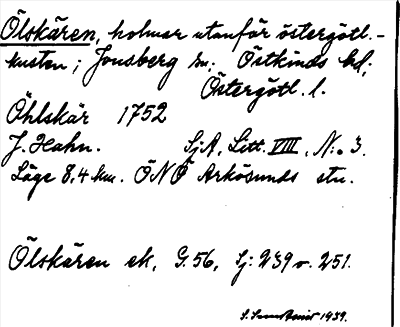 Ölskären, holmar utanför östergötl.-
kusten; Jonsberg sn; Östkinds hd;
Östergötl. l.
Öhlskär 1752
J. Hahn. SjA, Litt. VIII, N:o 3.
Läge 8,4 km. ÖNÖ Arkösunds stn.
Ölskären ek. G. 56, Sj: 239 o. 251.
1939.